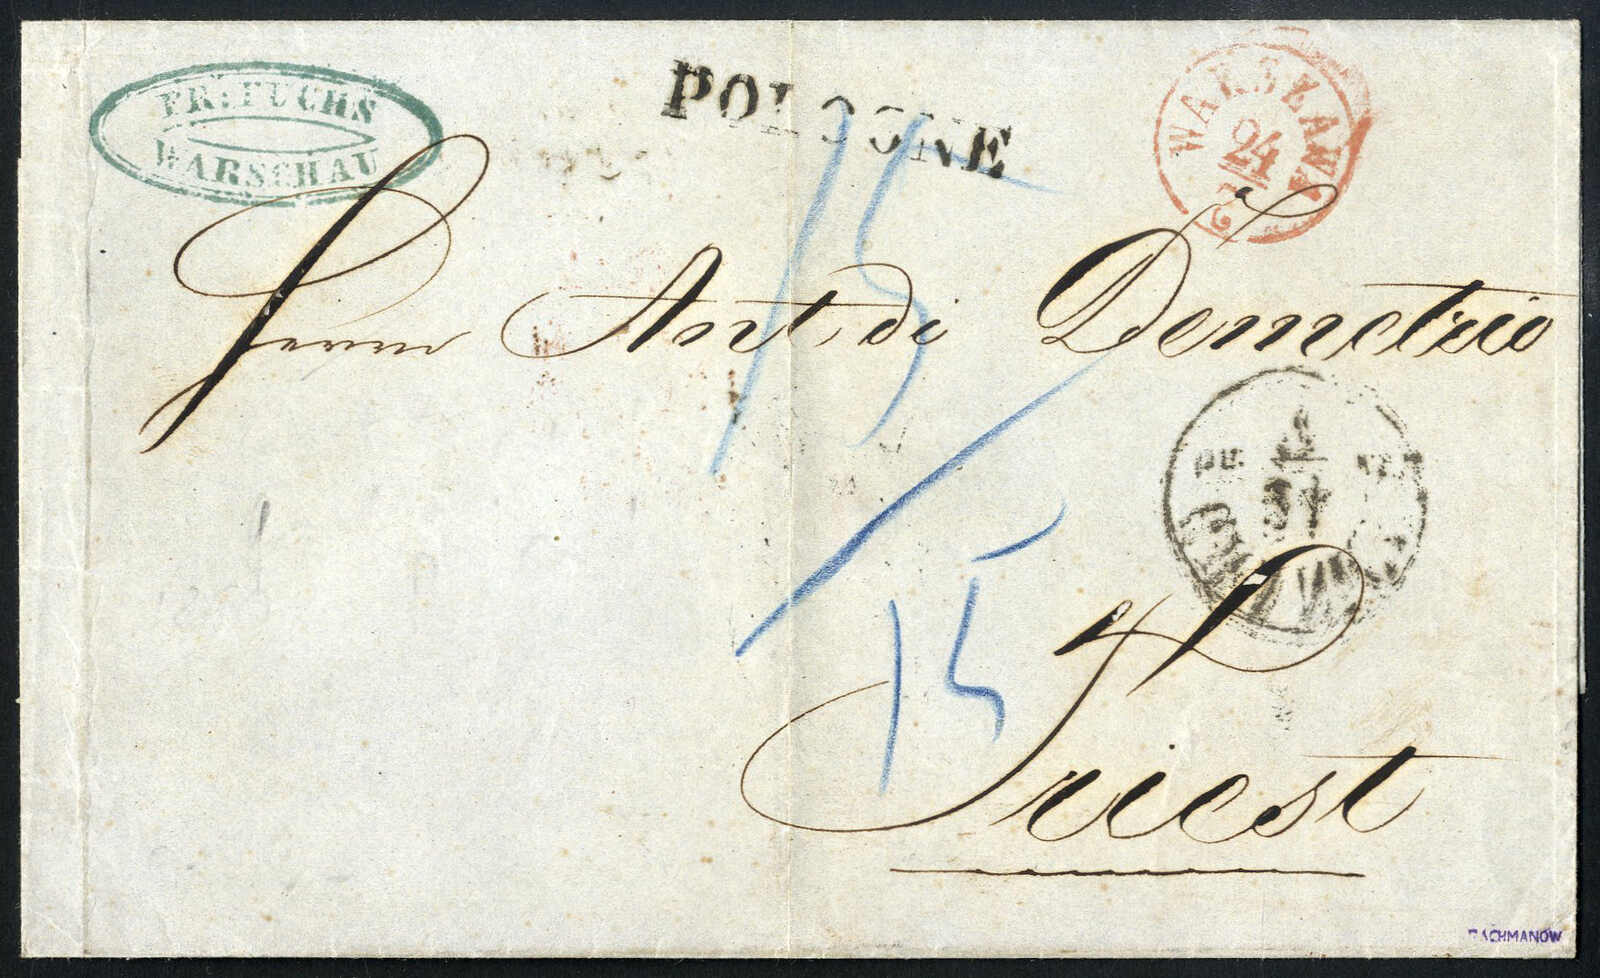 FR: FUCHS
WARSCHAU
POLOGNE
WARSZAWA
24
15
Herrn Ant di Demetrio
15
Triest
RACHMANOW